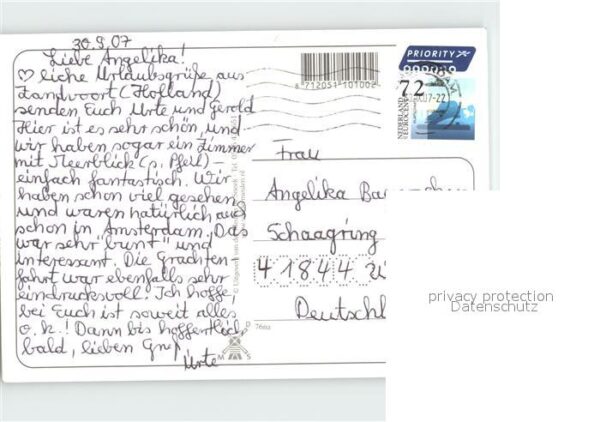 30.9.07
Liebe Angelika!
♡liche Urlaubsgrüße aus
Zandvoort (Holland)
senden Euch Urte und Gerold
Hier ist es sehr schön, und
wir haben sogar ein Zimmer
mit Meerblick (s. Pfeil) –
einfach fantastisch. Wir
haben schon viel gesehen
und waren natürlich auch
schon in Amsterdam. Das
war sehr "bunt" und
interessant. Die Grachten
fahrt war ebenfalls sehr
eindrucksvoll. Ich hoffe,
bei Euch ist soweit alles
o.k.! Dann bis hoffentlich
bald, lieben Gruß
Urte
8 712051 101002
PRIORITY
72
NEDERLAND
EUROCENT
Frau
Angelika
Schaagring
41844
Deutschl
7602
privacy protection
Datenschutz